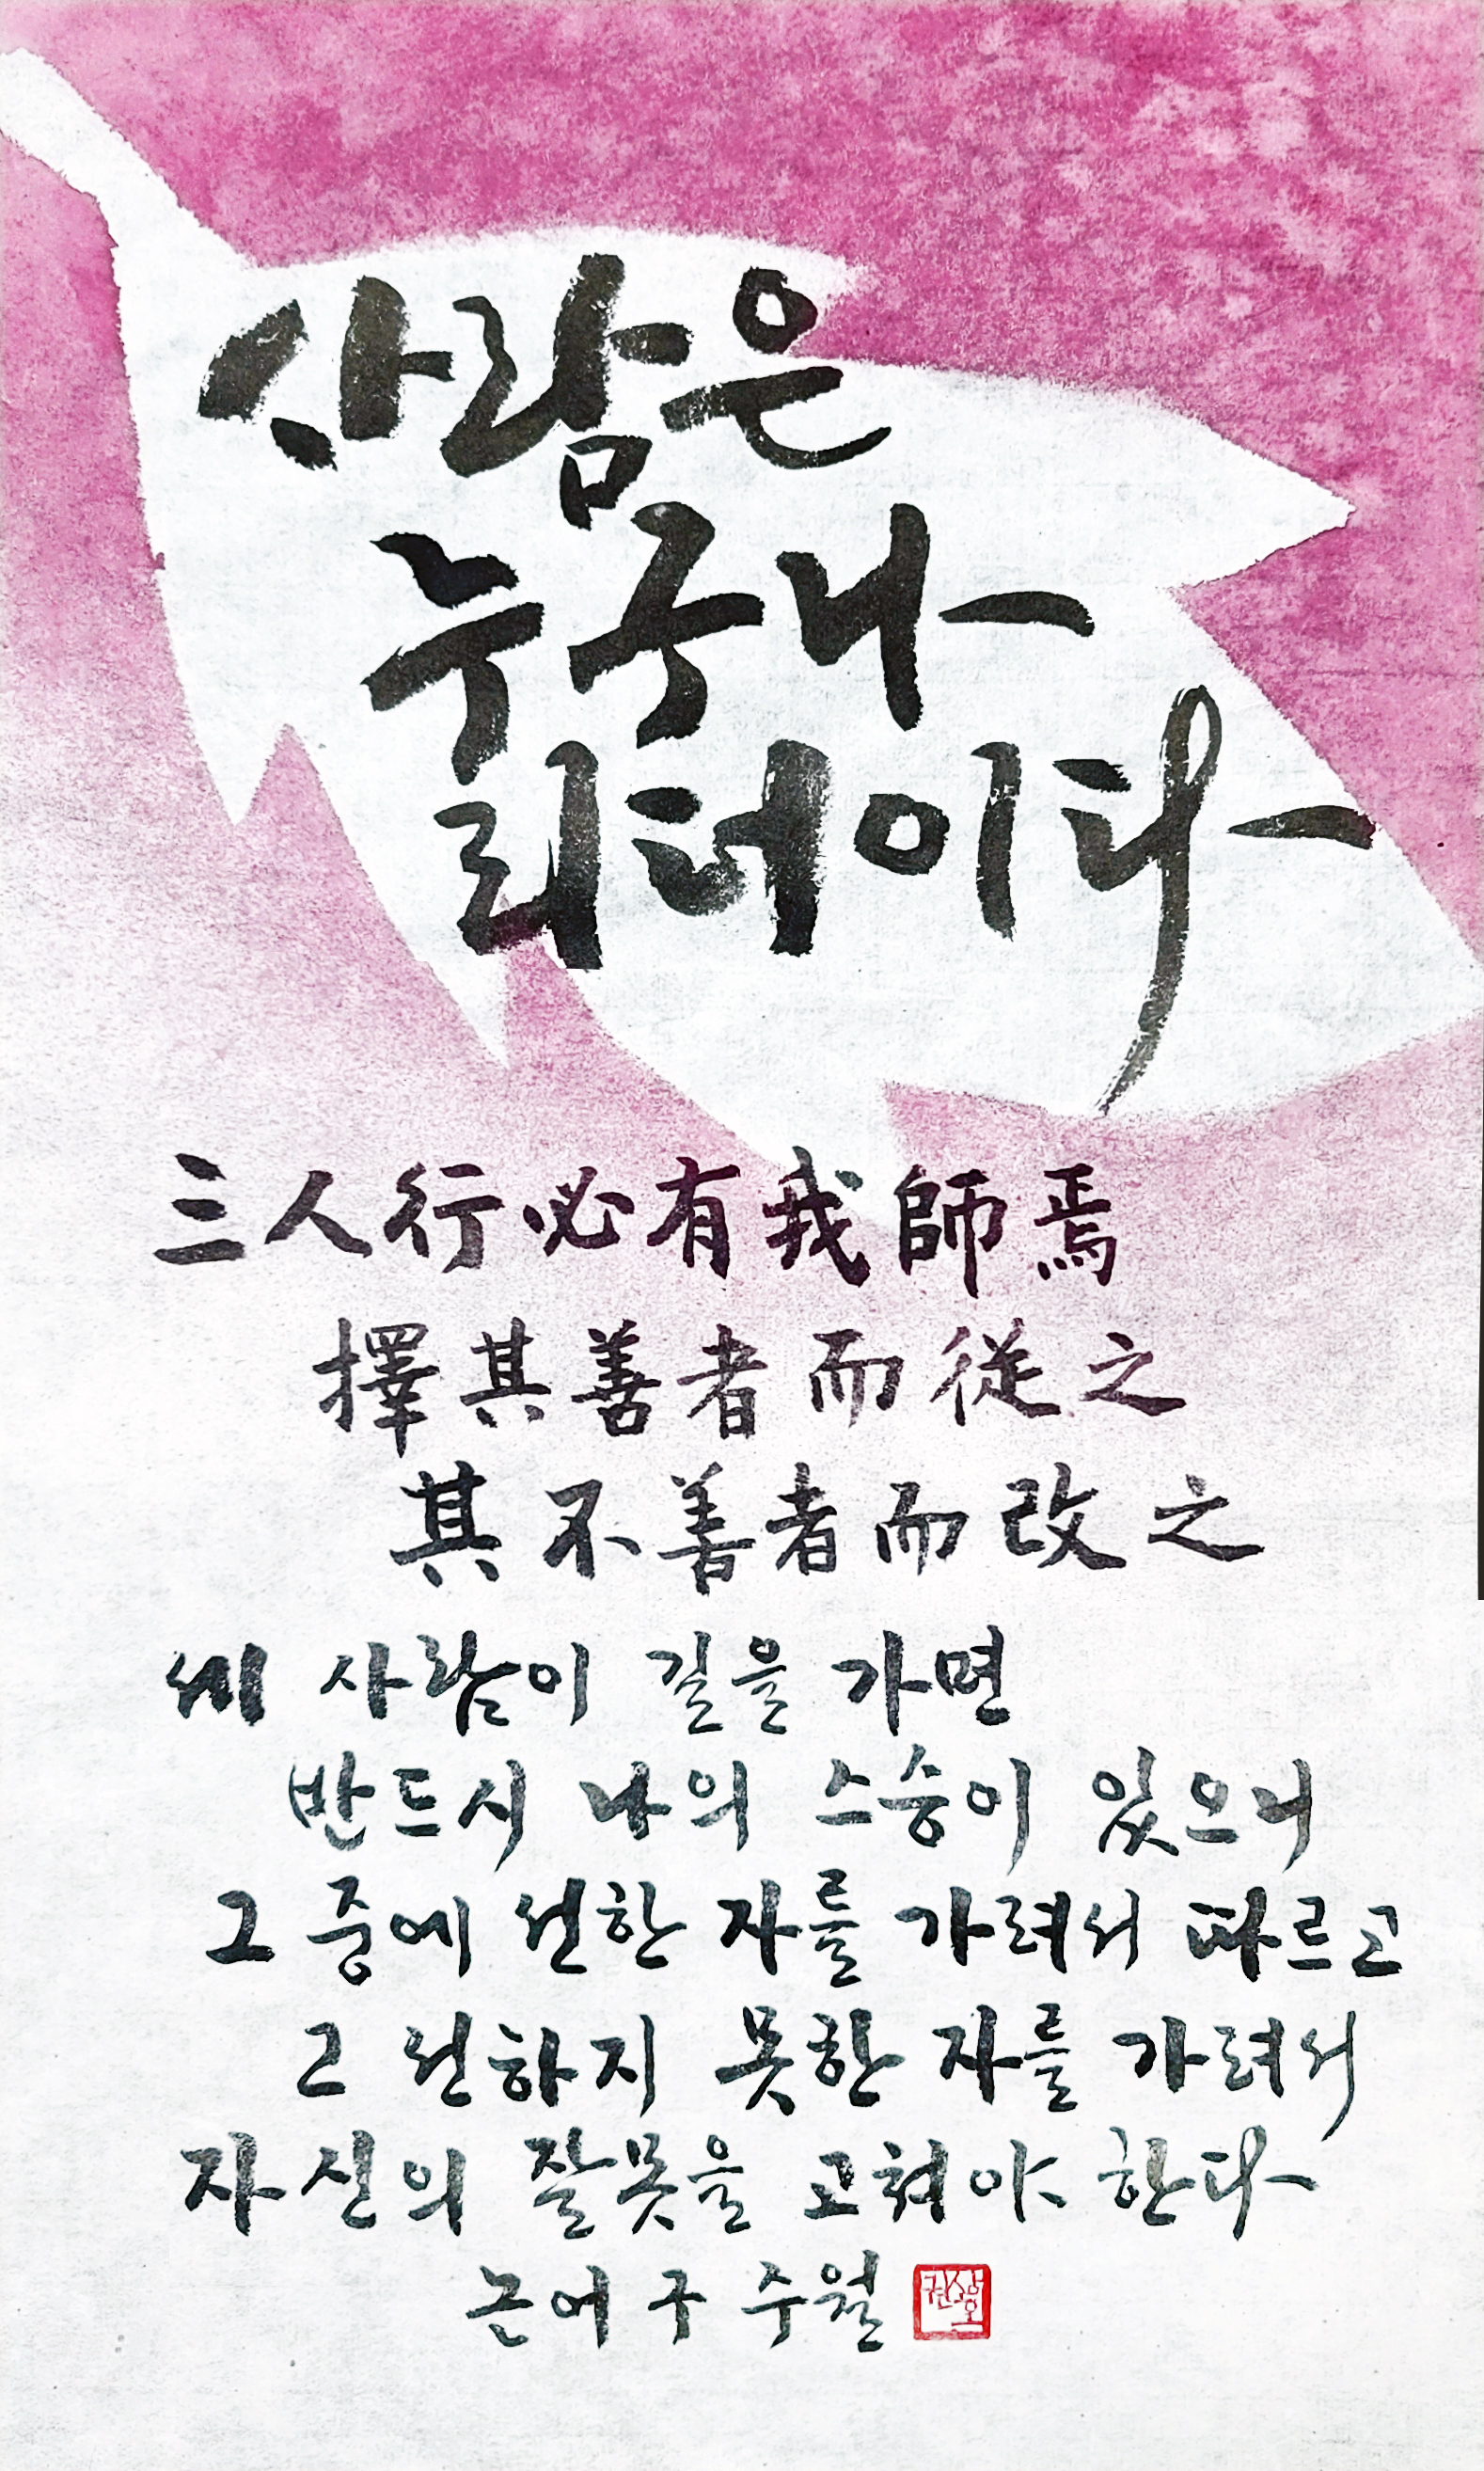 사람은
누구나
리더이다
三人行必有我師焉
擇其善者而從之
其不善者而改之
세 사람이 길을 가면
반드시 나의 스승이 있으니
그 중에 선한 자를 가려서 따르고
그 선하지 못한 자를 가려서
자신의 잘못을 고쳐야 한다
논어 구 수월
권상호